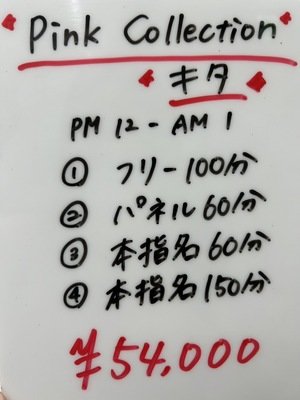 Pink Collection
キタ
PM 12 - AM 1
① フリー100分
② パネル 60分
③ 本指名 60分
④ 本指名 150分
¥54,000